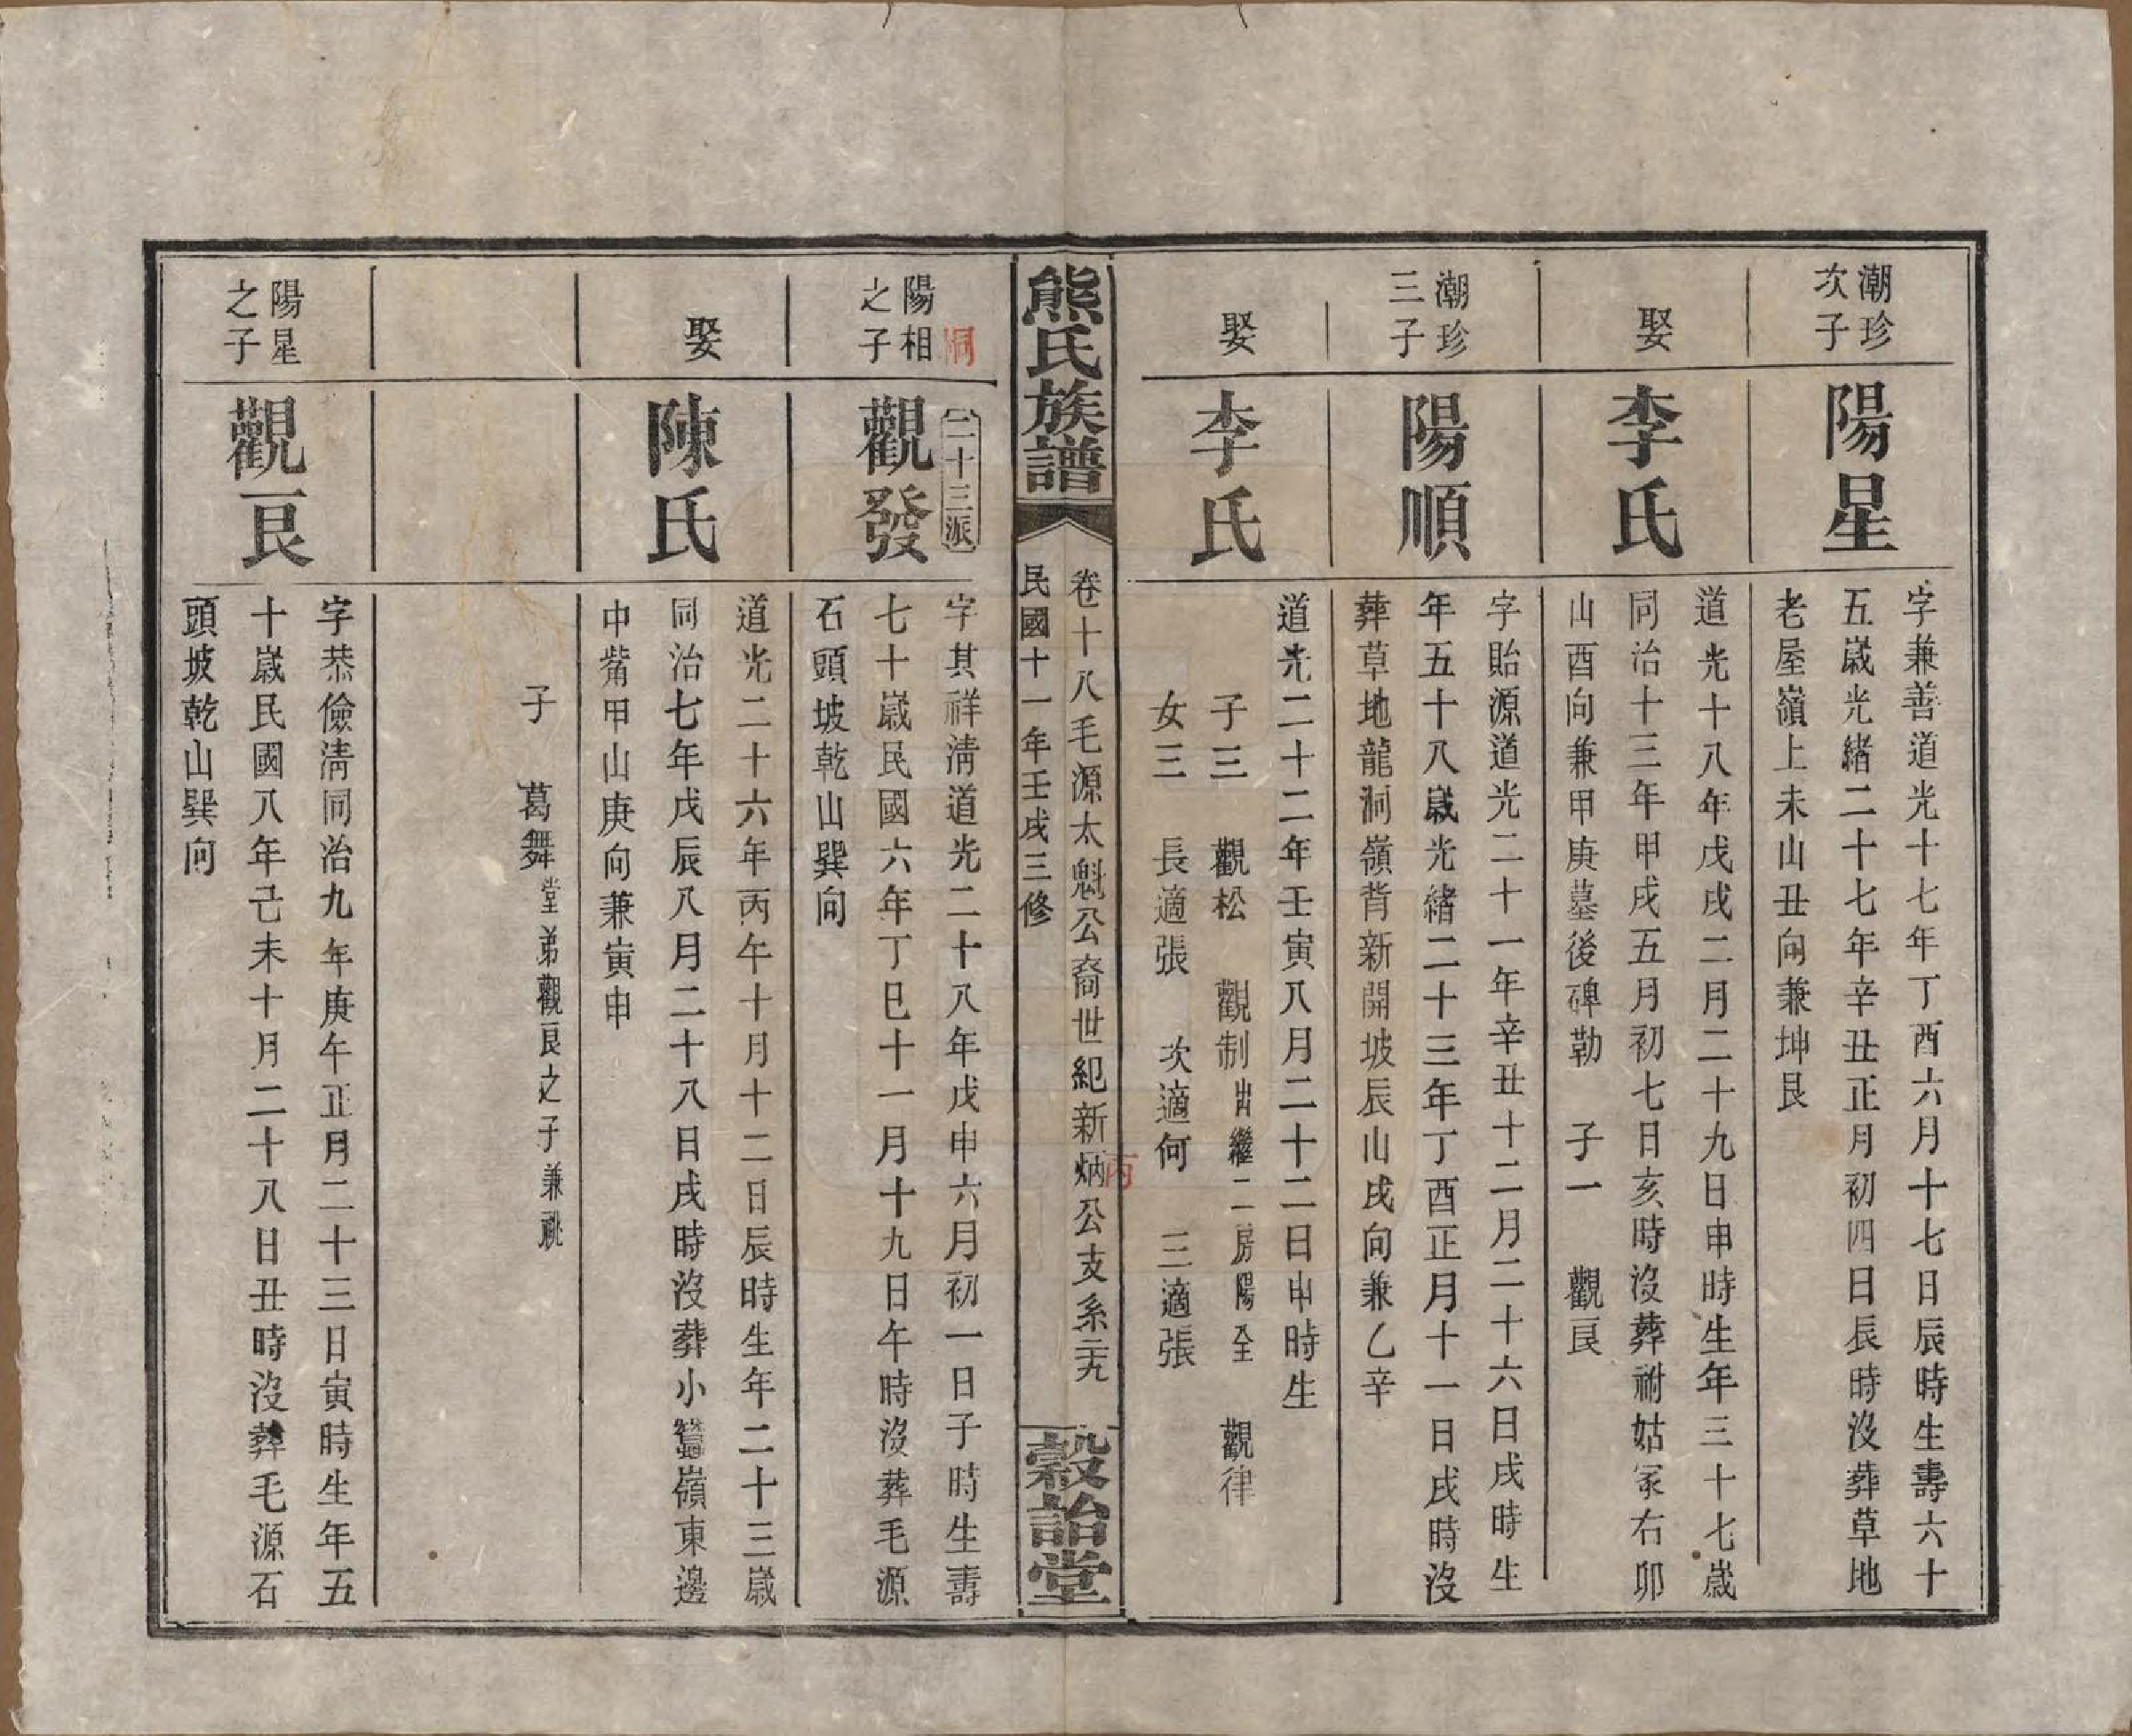 潮珍
次子
陽星
字兼善道光十七年丁酉六月十七日辰時生壽六十
五歲光緒二十七年辛丑正月初四日辰時沒葬草地
老屋嶺上未山丑向兼坤艮
娶
李氏
道光十八年戊戌二月二十九日申時生年三十七歲
同治十三年甲戌五月初七日亥時沒葬祔姑冢右卯
山酉向兼甲庚墓後碑勒 子一 觀良
潮珍
三子
陽順
字貽源道光二十一年辛丑十二月二十六日戌時生
年五十八歲光緒二十三年丁酉正月十一日戌時沒
葬草地龍洞嶺背新開坡辰山戌向兼乙辛
娶
李氏
道光二十二年壬寅八月二十二日申時生
子三 觀松 觀制出繼二房陽全 觀律
女三 長適張 次適何 三適張
熊氏族譜
卷十八毛源太魁公裔世紀新炳公支系 二九
丙
民國十一年壬戌三修
穀詒堂
洞
二十三派
陽相
之子
觀發
字其祥淸道光二十八年戊申六月初一日子時生壽
七十歲民國六年丁巳十一月十九日午時沒葬毛源
石頭坡乾山巽向
娶
陳氏
道光二十六年丙午十月十二日辰時生年二十三歲
同治七年戊辰八月二十八日戌時沒葬小嶺東邊
中觜甲山庚向兼寅申
子 葛舞堂弟觀良之子兼祧
陽星
之子
觀良
字恭儉淸同治九年庚午正月二十三日寅時生年五
十歲民國八年己未十月二十八日丑時沒葬毛源石
頭坡乾山巽向